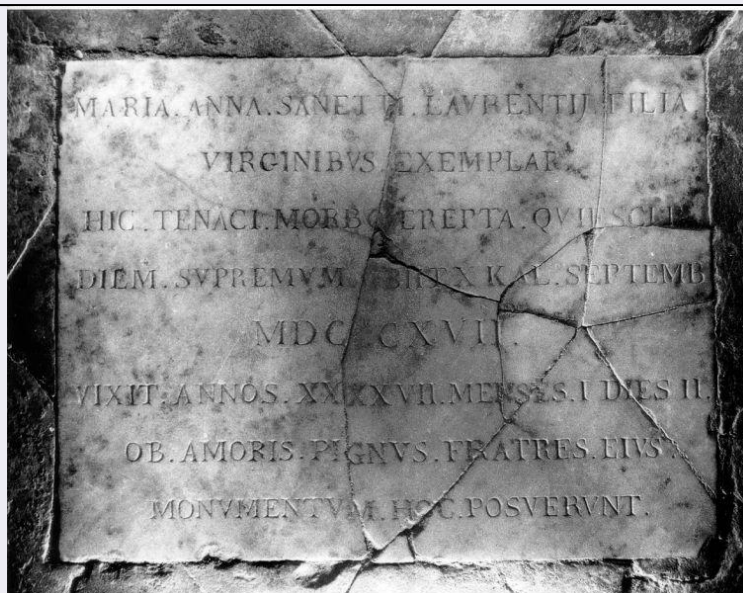 MARIA. ANNA. SANETTI. LAVRENTIJ. FILIA
VIRGINIBVS. EXEMPLAR
HIC. TENACI. MORBO EREPTA. QVIESCIT
DIEM. SVPREMVM. OBIIT. X KAL. SEPTEMB
MDCCCXVII.
VIXIT. ANNOS. XXXXVII. MENSES. I DIES II.
OB. AMORIS. PIGNVS. FRATRES. EIVS
MONVMENTVM. HOC. POSVERVNT.